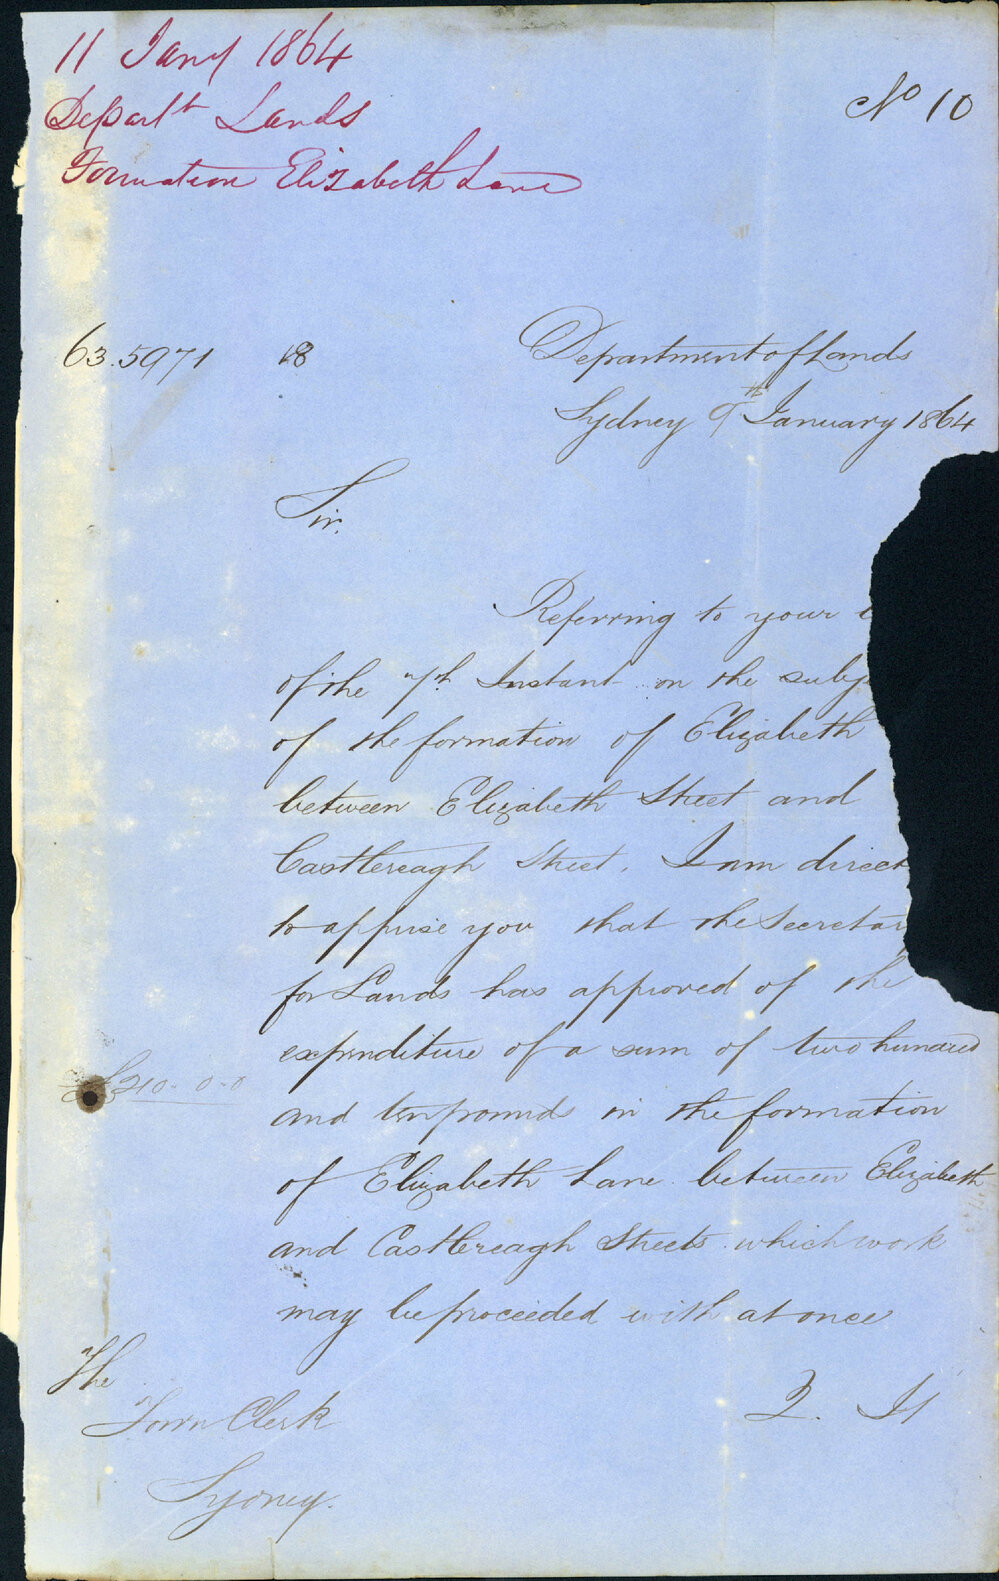 11 Jany 1864
Depart<sup>t</sup> Lands
Formation Elizabeth Lane
No 10
63.5971 18
Department of Lands
Sydney 9th January 1864
Sir.
Referring to your
of the 7th Instant on the subj
of the formation of Elizabeth
between Elizabeth Street and
Castlereagh Street, I am direct
to apprise you that the Secretar
for Lands has approved of the
expenditure of a sum of two hundred
£210-0-0
and ten pounds in the formation
of Elizabeth Lane between Elizabeth
and Castlereagh Streets which work
may be proceeded with at once
2. It
The
Town Clerk
Sydney.